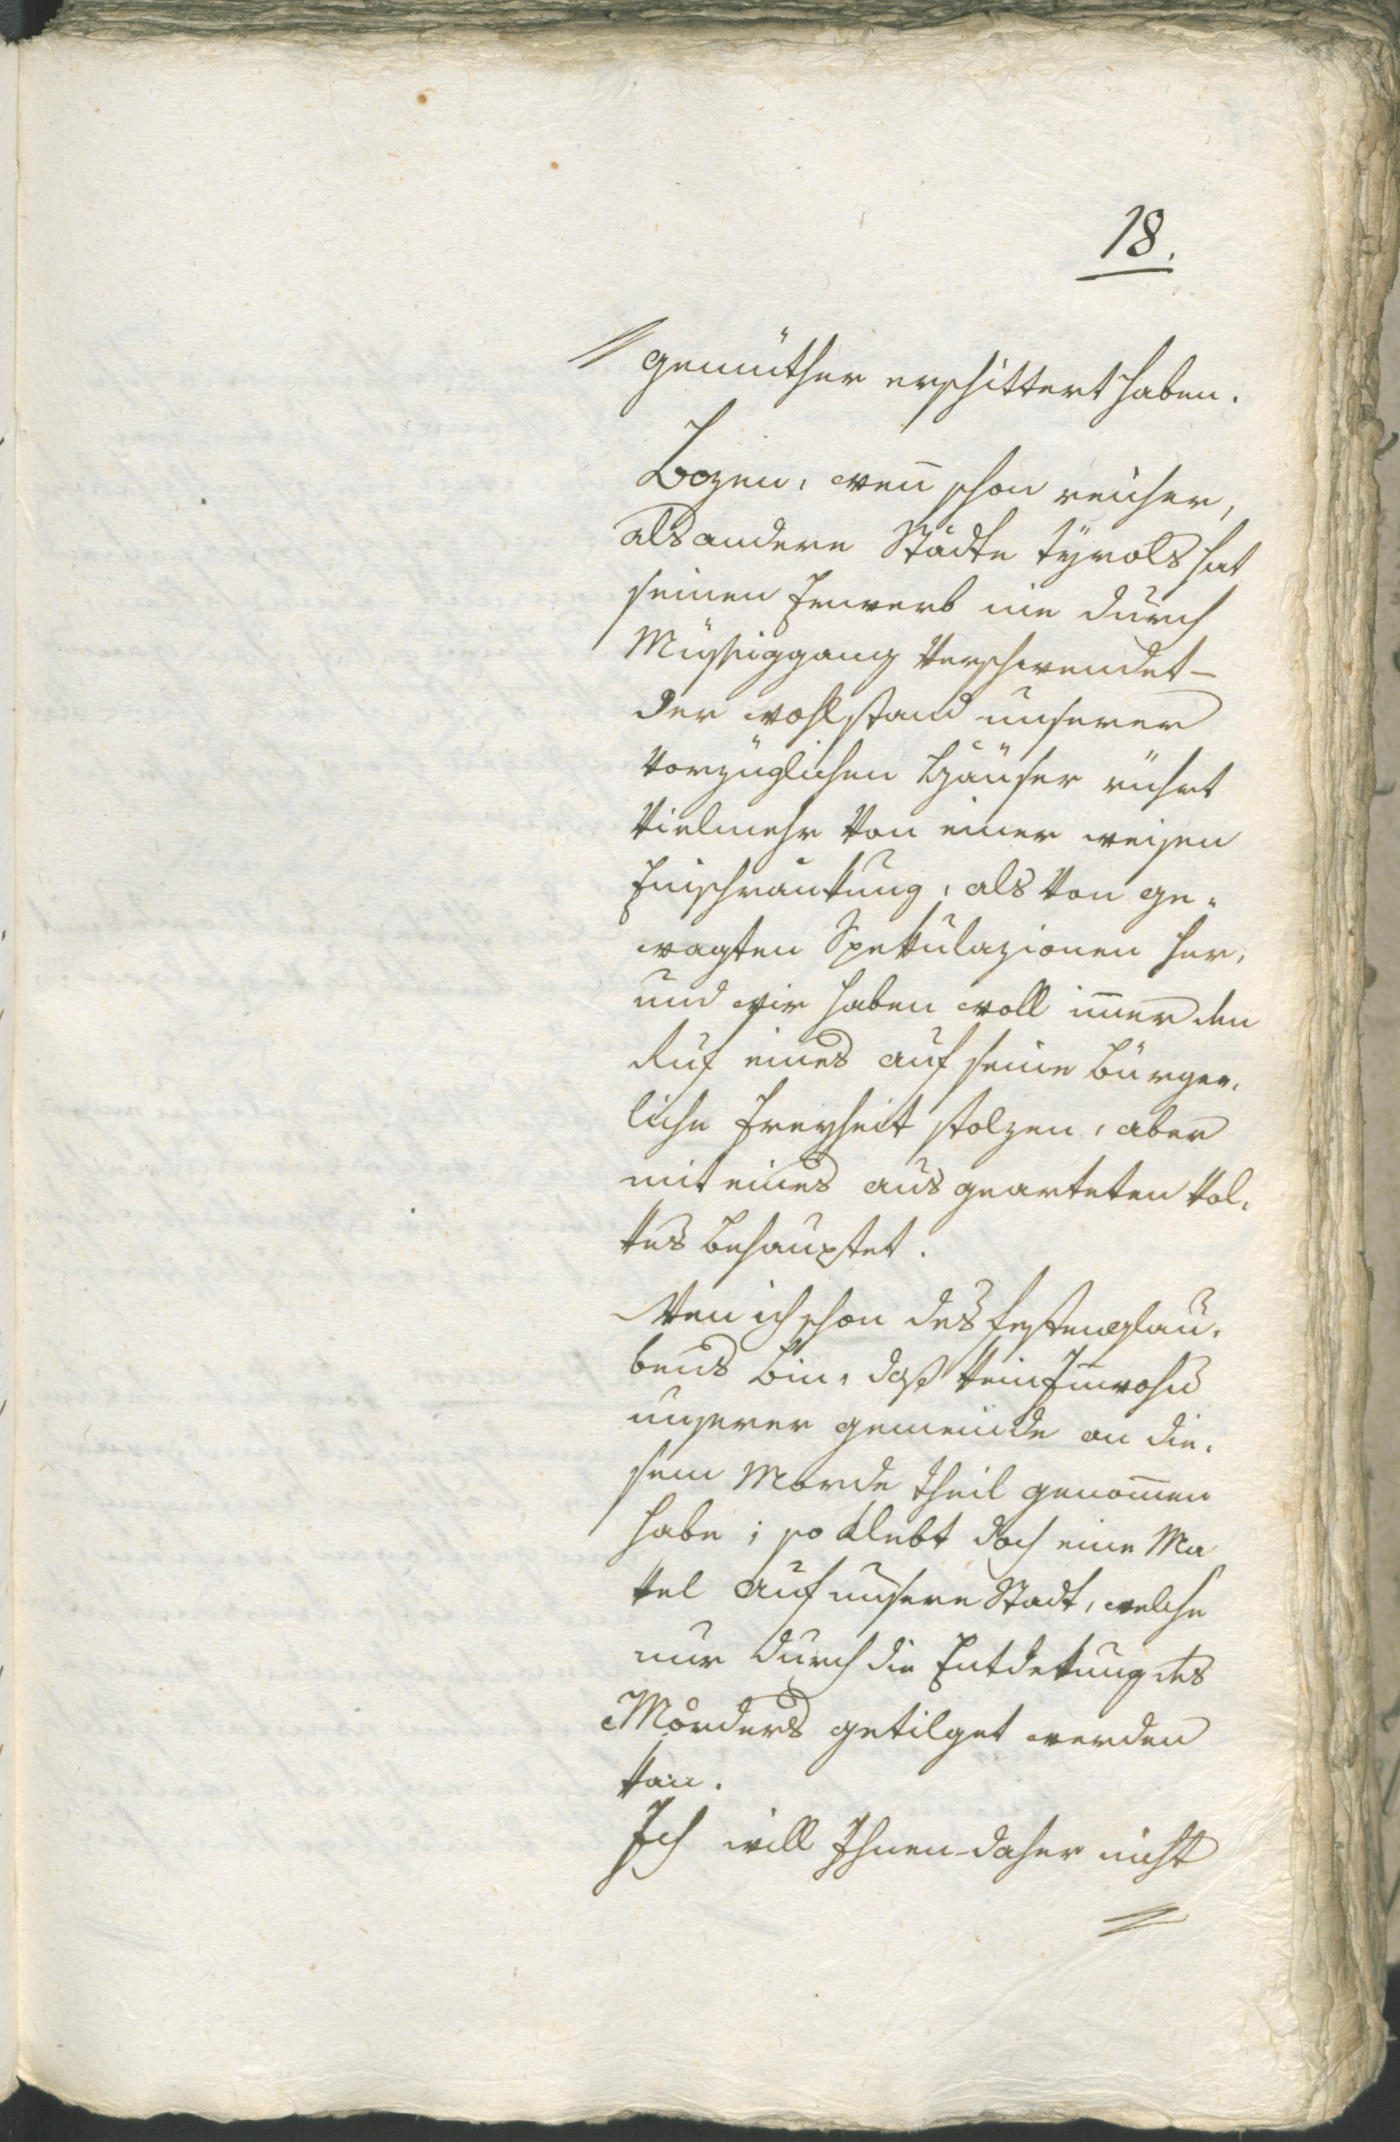 18.
// gemüther erschittert haben.
Bozen, weñ schon reicher,
als andere Städte tÿrols hat
seinen Erwerb nie durch
Müssiggang verschwendet –
der wohlstand unserer
vorzüglichen Häuser rührt
vielmehr von einer weisen
Einschränkung, als von ge=
wagten Spekulazionen her,
und wir haben woll im̄er den
Ruf eines auf seine bürger=
liche Freyheit stolzen, aber
nit eines ausgearteten Vol=
kes behauptet.
Wen ich schon des festen glau=
bens bin, daß kein Inwohn
unserer gemeinde an die=
sem Morde theil genom̄en
habe; so klebt doch eine Ma
kel auf unsere Stadt, welche
nur durch die Entdekung des
Mörders getilget werden
kañ.
Ich will Ihnen daher nicht
//